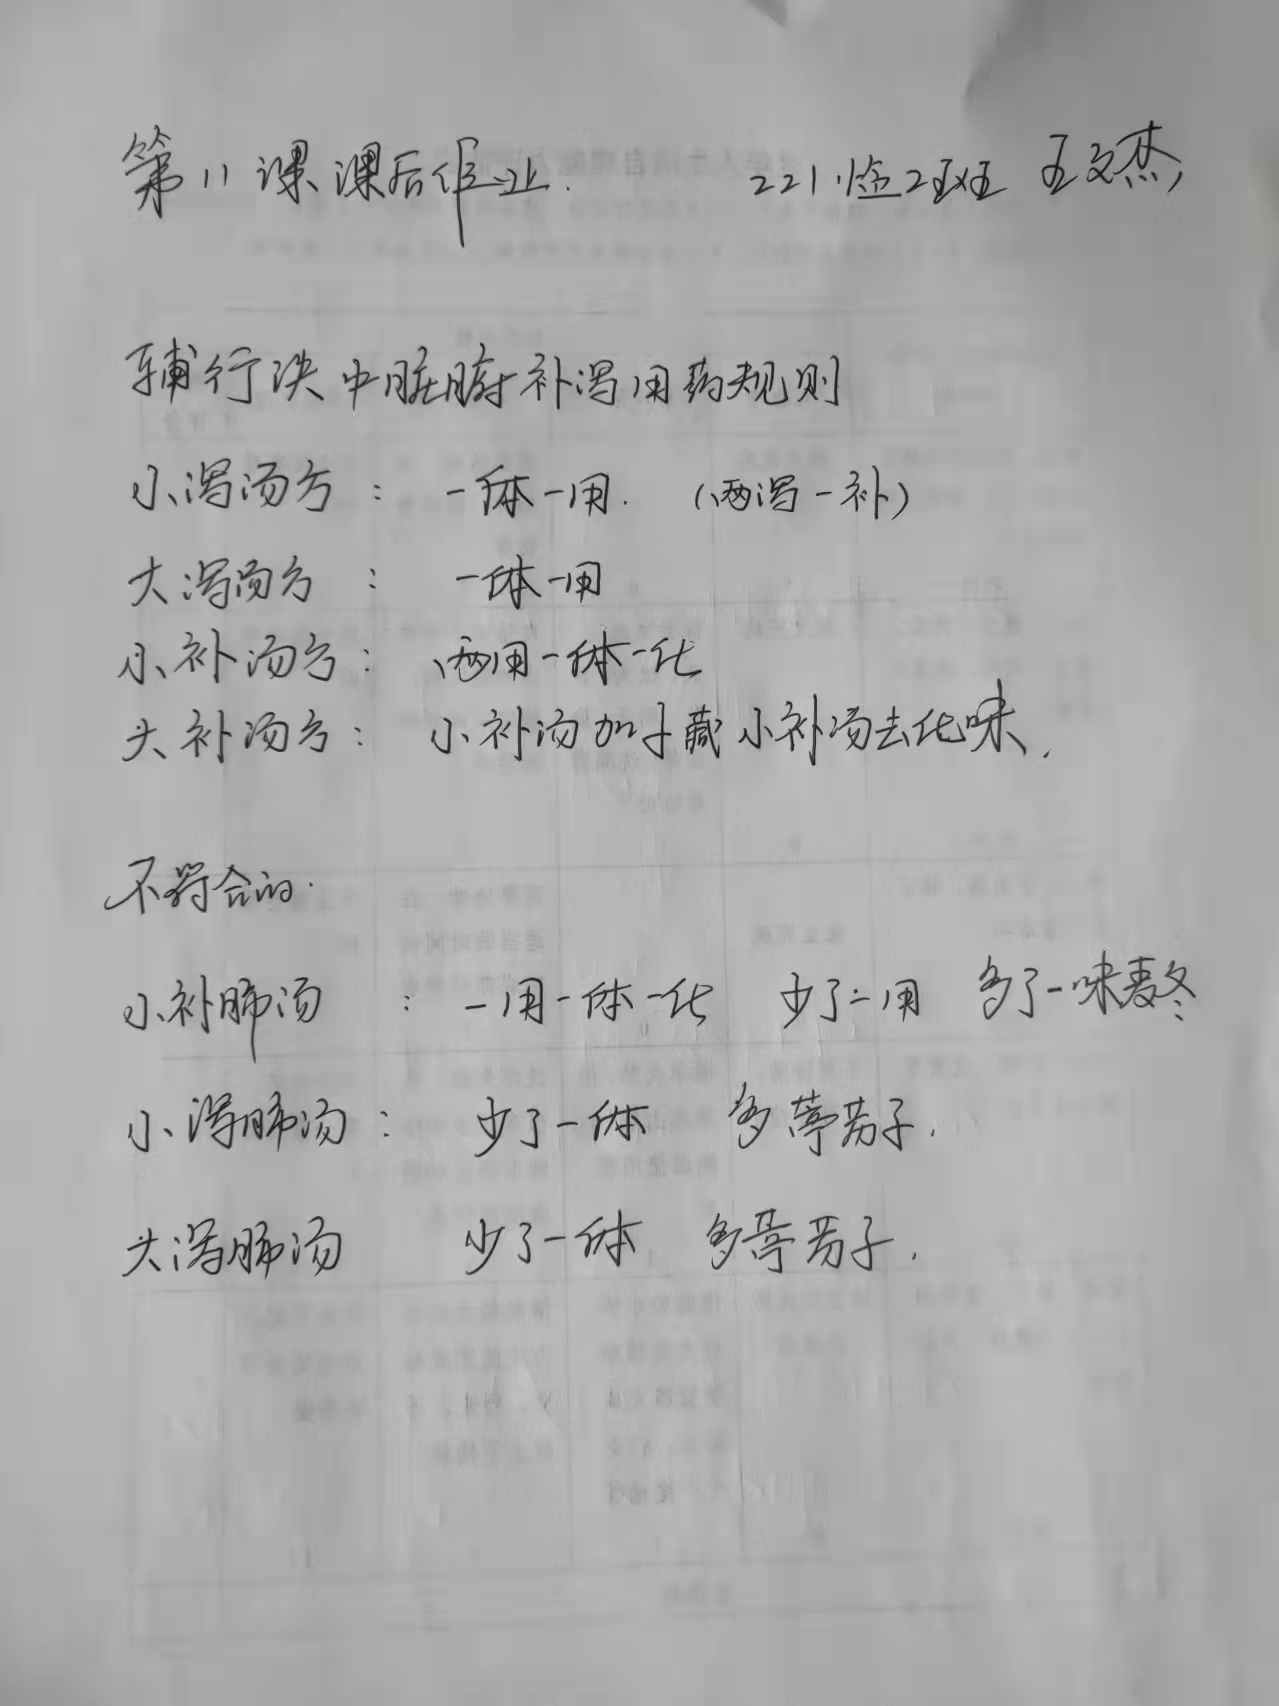 第11课 课后作业. 221临2班 王文杰
辅行决中脏腑补泻用药规则
小泻汤方: 一体一用. (两泻一补)
大泻汤方: 一体一用
小补汤方: 两用一体一化
大补汤方: 小补汤加子藏小补汤去化味.
不符合的:
小补肺汤: 一用一体一化 少了一用 多了一味麦冬
小泻肺汤: 少了一体 多葶苈子.
大泻肺汤 少了一体 多葶苈子.